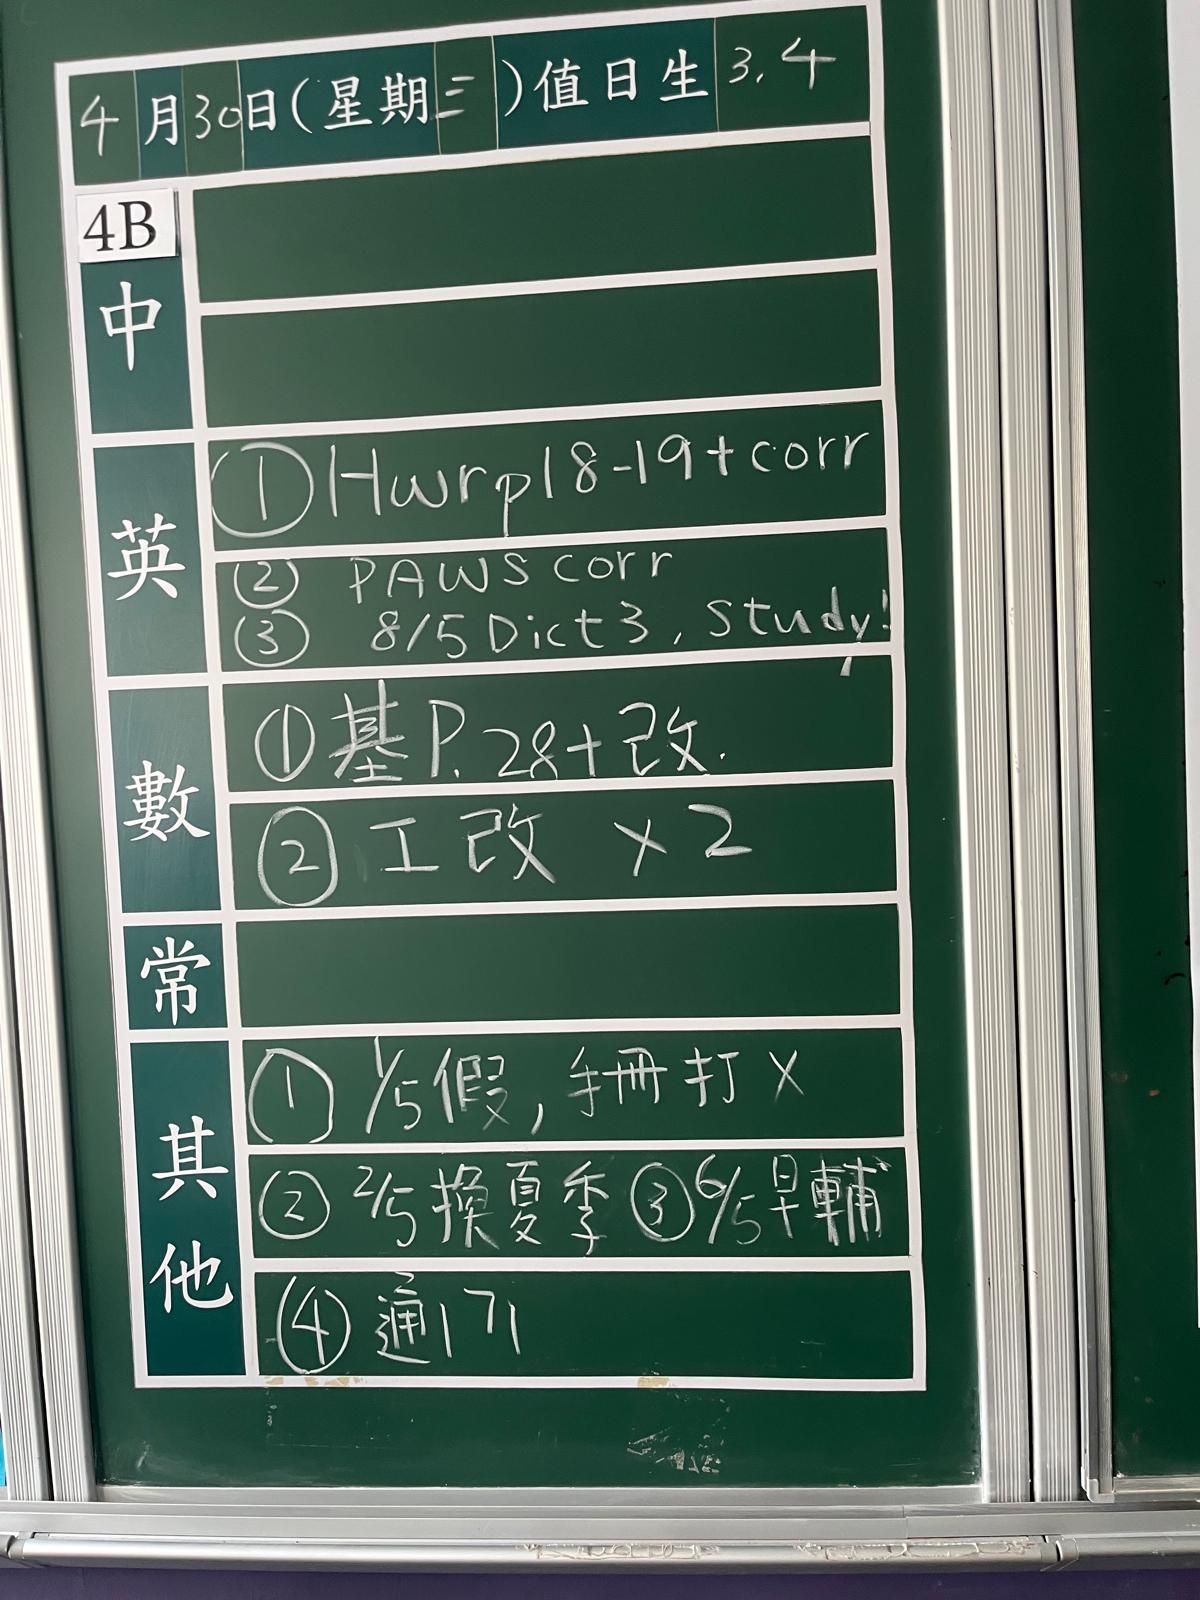 4月30日(星期三)值日生 3.4
4B
中
英
①Hwrp18-19+corr
② PAWS corr
③ 8/5 Dict3, study!
數
①基P.28+改.
②工改 x2
常
其他
①1/5假,手冊打X
②2/5換夏季 ③6/5早輔
④通171